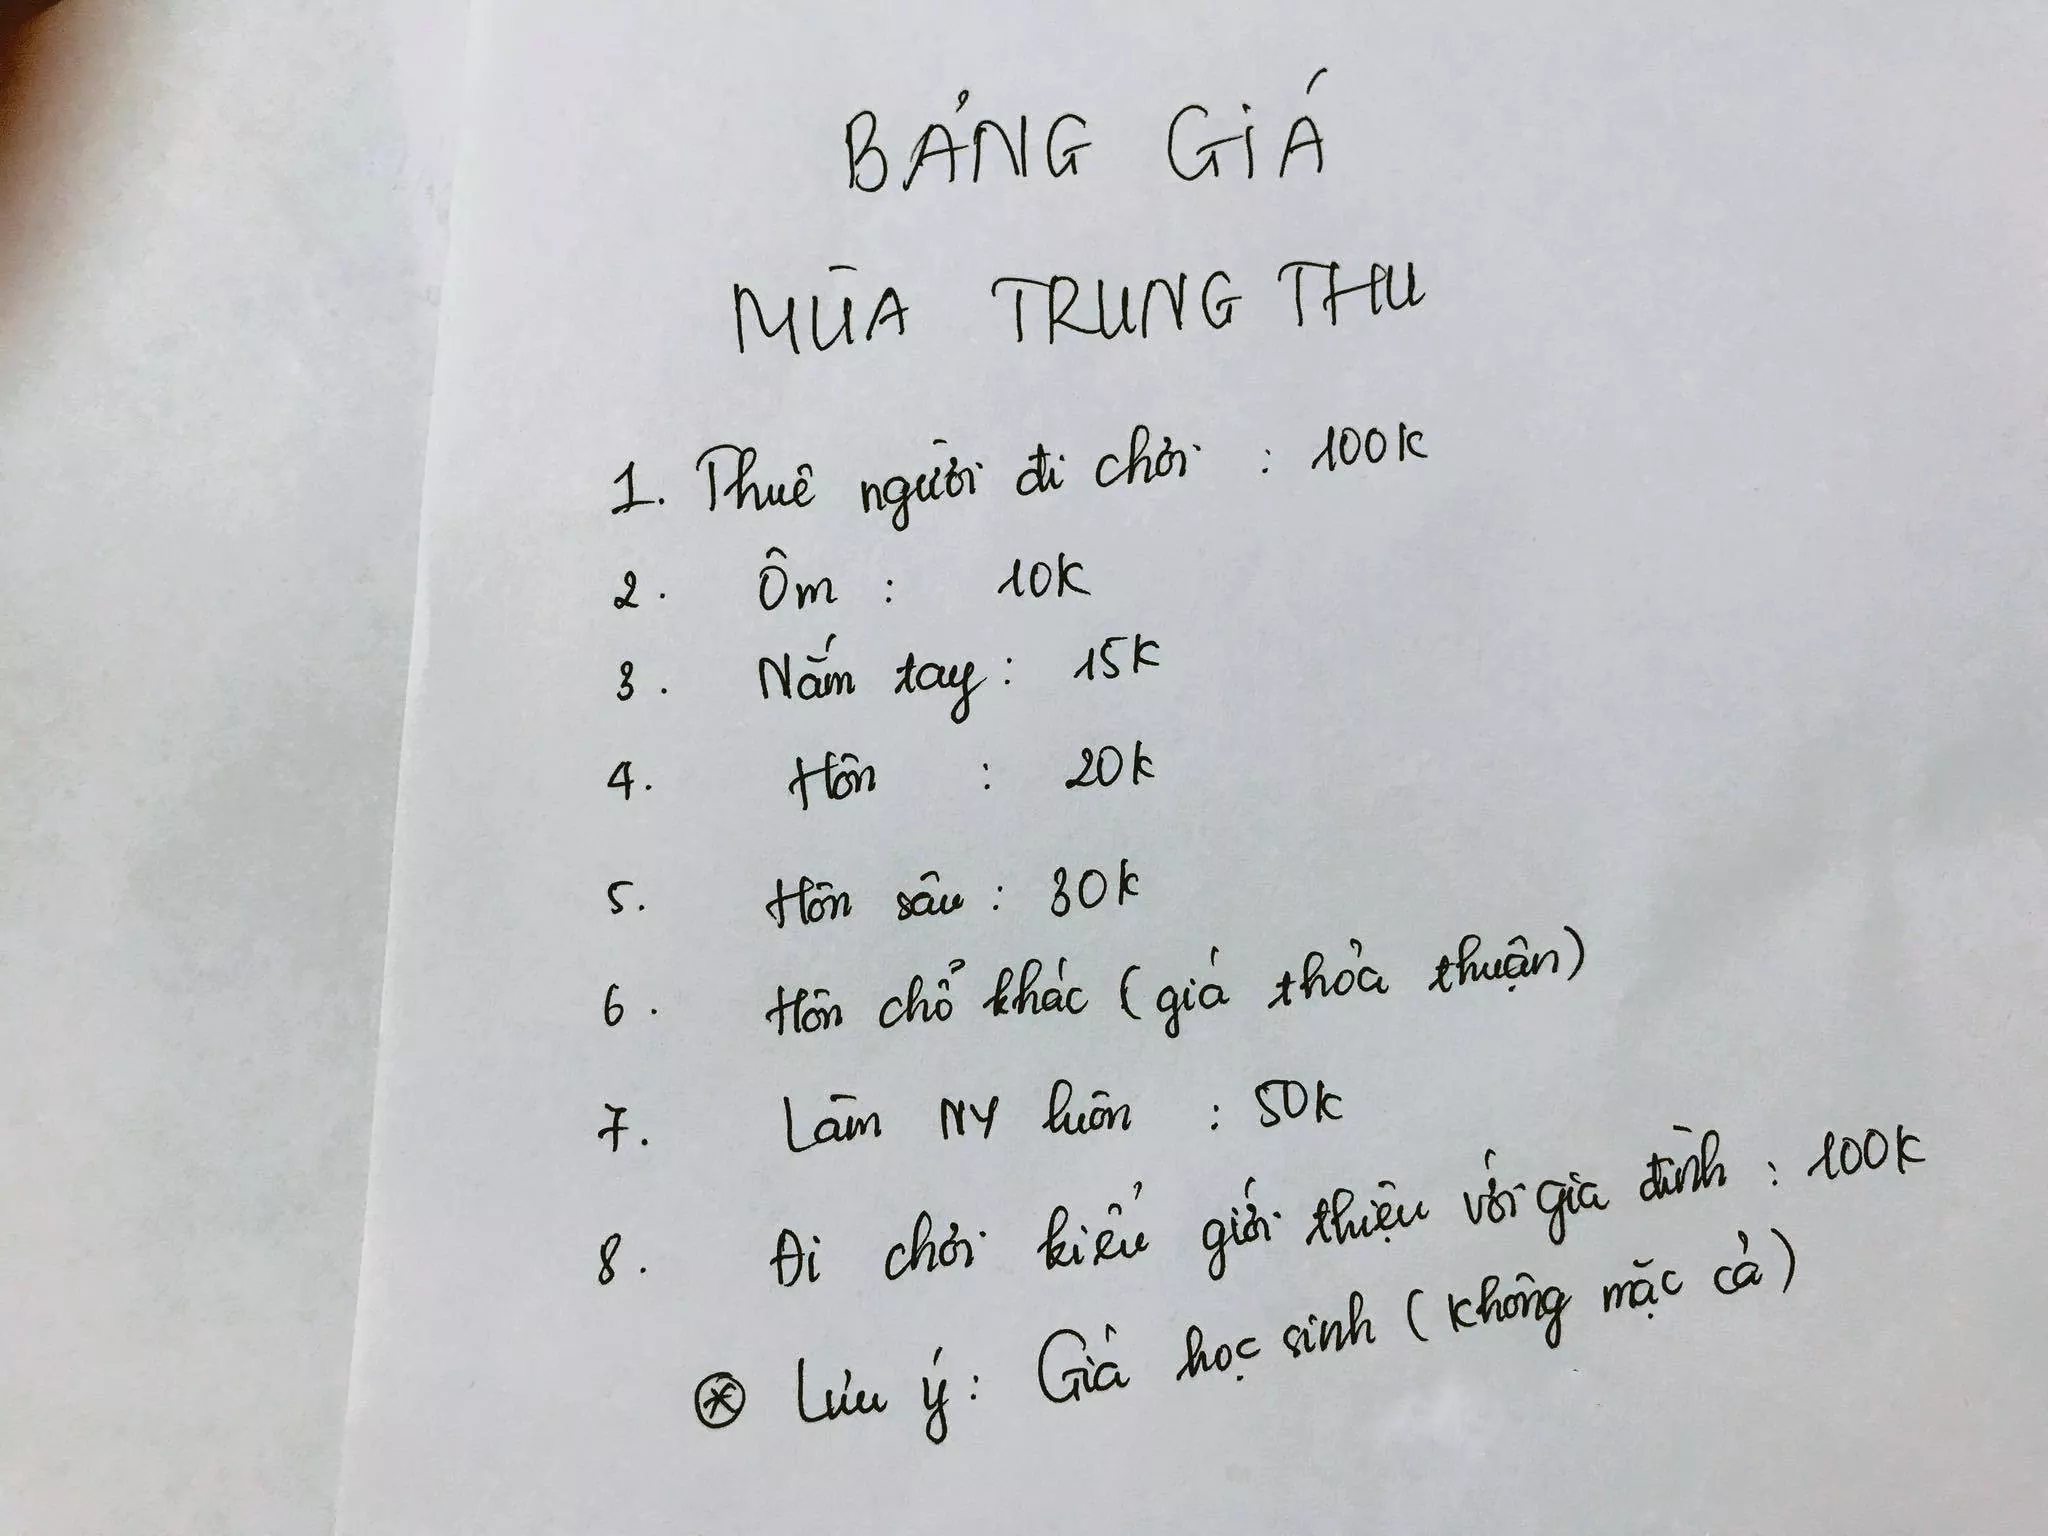 BẢNG GIÁ
MÙA TRUNG THU
1. Thuê người đi chơi : 100K
2. Ôm : 10K
3. Nắm tay : 15K
4. Hôn : 20K
5. Hôn sâu : 30K
6. Hôn chổ khác (giá thỏa thuận)
7. Làm NY luôn : 50K
8. Đi chơi kiểu giới thiệu với gia đình : 100K
⊛ Lưu ý : Giá học sinh (không mặc cả)